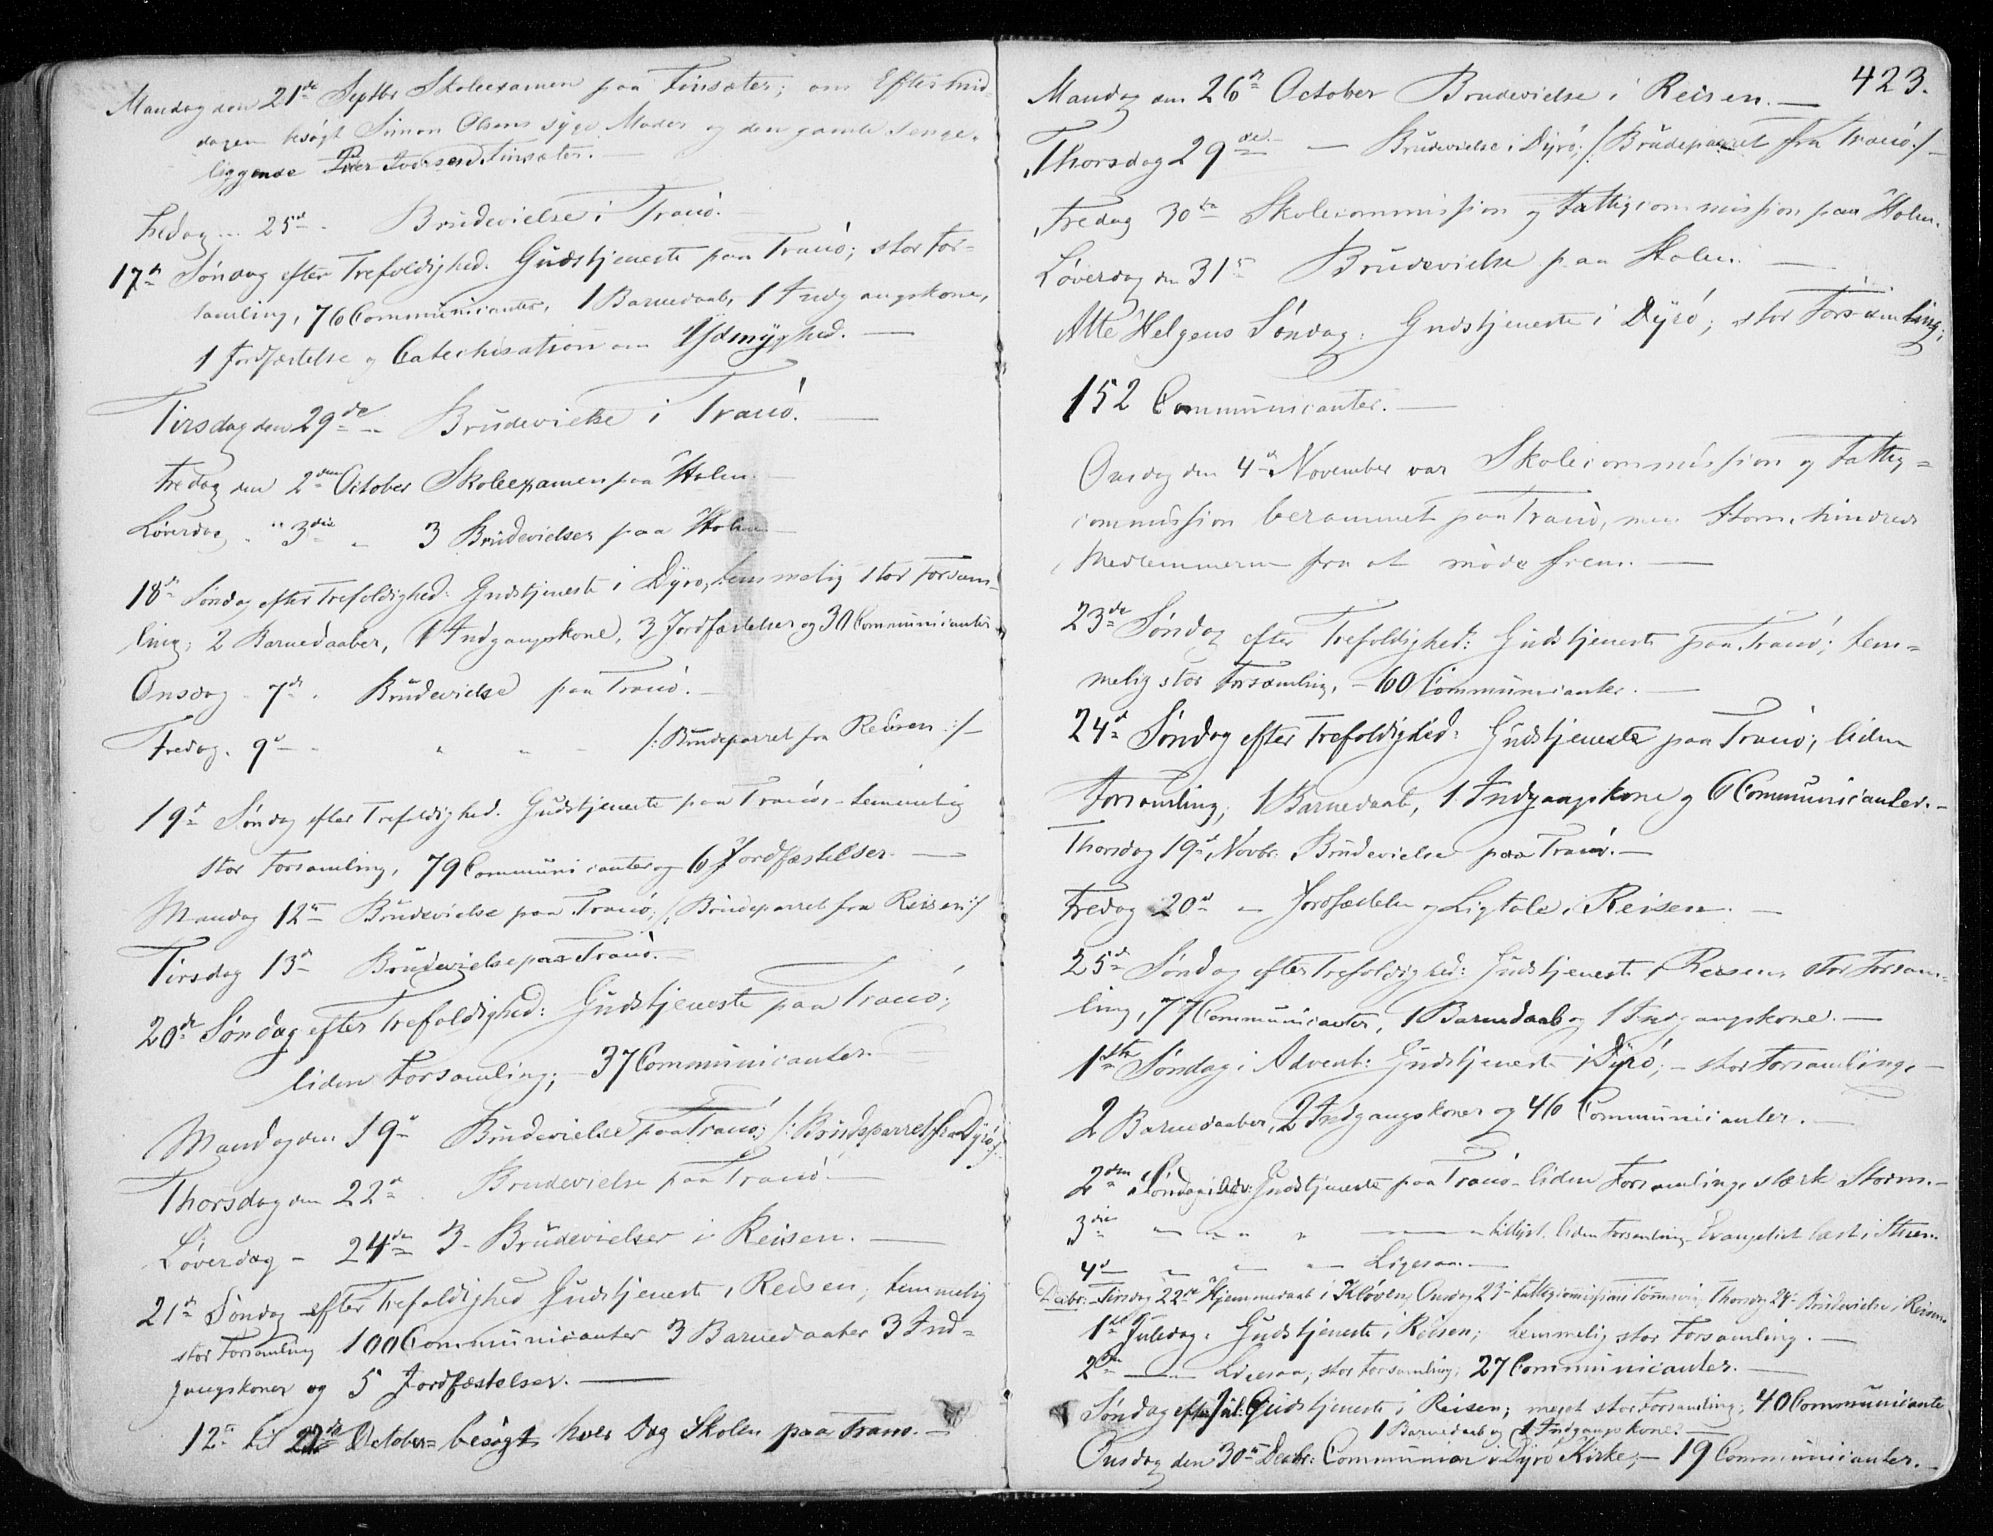 Mandag den 21de Septbr Skoleexamen paa Finsæter; om Eftermid-
dagen besøgt Simon Olsens syge Moder og den gamle senge-
liggende Peer Iversen Finsæter. —
Fredag ... 25de - Brudevielse i Tranö. —
17de Søndag efter Trefoldighed. Gudstjeneste paa Tranö; stor For-
samling, 76 Communicanter, 1 Barnedaab, 1 Indgangskone,
1 Jordfæstelse og Catechisation om Ydmyghed. —
Tirsdag den 29de — Brudevielse i Tranö. —
Fredag den 2den October Skoleexamen paa Holm. —
Løverdag " 3die " 3 Brudevielser paa Holm —
18de Søndag efter Trefoldighed: Gudstjeneste i Dyrö, temmelig stor Forsam-
ling; 2 Barnedaaber, 1 Indgangskone, 3 Jordfæstelser og 30 Communicanter.
Onsdag - 7de . Brudevielse paa Tranö. —
Fredag . 9de — " " - /: Brudeparret fra Reisen :/ —
19de Søndag efter Trefoldighed. Gudstjeneste paa Tranö, - temmelig
stor Forsamling, 79 Communicanter og 6 Jordfæstelser. —
Mandag 12te Brudevielse paa Tranö; /: Brudeparret fra Reisen :/
Tirsdag 13de Brudevielse paa Tranö. —
20de Søndag efter Trefoldighed: Gudstjeneste paa Tranö;
liden Forsamling; — 37 Communicanter. —
Mandag den 19de Brudevielse paa Tranö; /: Brudsparret fra Dyrö :/
Thorsdag den 22de . Brudevielse paa Tranö. —
Løverdag — 24de 3 - Brudevielser i Reisen. —
21de Søndag efter Trefoldighed Gudstjeneste i Reisen; temmelig
stor Forsamling 100 Communicanter 3 Barnedaaber 3 Ind-
gangskoner og 5 Jordfæstelser. —
12te til 22de October besøgt hver Dag Skolen paa Tranö. —
423.
Mandag den 26de October Brudevielse i Reisen. —
Thorsdag 29de — Brudevielse i Dyrö; /: Brudeparret fra Tranö :/ —
Fredag 30te Skolecommission og Fattigcommission paa Holm.
Løverdag den 31te Brudevielse paa Holm. —
Alle Helgens Søndag: Gudstjeneste i Dyrö; stor Forsamling;
152 Communicanter. —
Onsdag den 4de November var Skolecommission og Fattig-
commission berammet paa Tranö, men Storm hindrede
Medlemmerne fra at møde frem. —
23de Søndag efter Trefoldighed: Gudstjeneste paa Tranö; tem-
melig stor Forsamling, - 60 Communicanter. —
24de Søndag efter Trefoldighed: Gudstjeneste paa Tranö; liden
Forsamling; 1 Barnedaab, 1 Indgangskone og 6 Communicanter. —
Thorsdag 19de Novbr: Brudevielse paa Tranö. —
Fredag 20de — Jordfæstelse og Ligtale i Reisen. —
25de Søndag efter Trefoldighed: Gudstjeneste i Reisen, stor Forsam-
ling, 77 Communicanter, 1 Barnedaab og 1 Indgangskone. —
1ste Søndag i Advent: Gudstjeneste i Dyrö; — stor Forsamling, —
2 Barnedaaber, 2 Indgangskoner og 46 Communicanter. —
2den Søndag i Adv: Gudstjeneste paa Tranö - liden Forsamling, stærk Storm. —
3die — " " " — liden Forsamling. Evangeliet læst i
4de — — — Ligesaa. —
Decbr: Tirsdag 22de Hjemmedaab i Kløven, Onsdag 23de Fattigcomission i Thorsdag 24de Brudevielse i Reisen
1ste Juledag: Gudstjeneste i Reisen; temmelig stor Forsamling. —
2den — — Ligesaa, stor Forsamling; 27 Communicanter. —
Søndag efter Jul: Gudstjeneste i Reisen; meget stor Forsamling; 40 Communicanter
1 Barnedaab og 1 Indgangskone. —
Onsdag den 30te Decbr: Communion i Dyrö Kirke; — 19 Communicanter. —